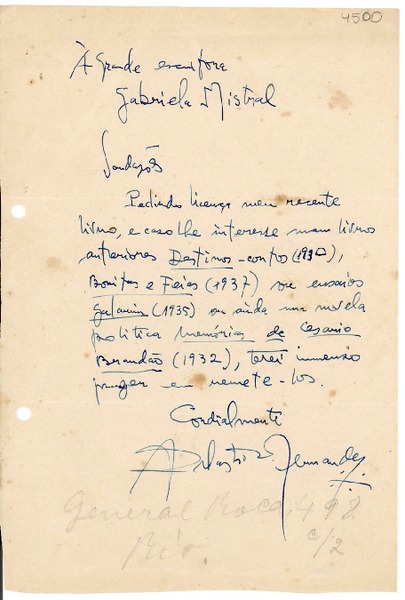 4500
À grande escritora
Gabriela Mistral
Saudações
Pedindo licença meu recente
livro, e caso lhe interesse meus livros
anteriores Destinos - contos (1930),
Bonitas e Feias (1937) ou ensaios
(1935) ou ainda um novela
política Memórias de Cesario
Brandão (1932), terei immenso
prazer em remete-los.
Cordialmente
Fernandes
General Roca, 498
c/2
Rio.